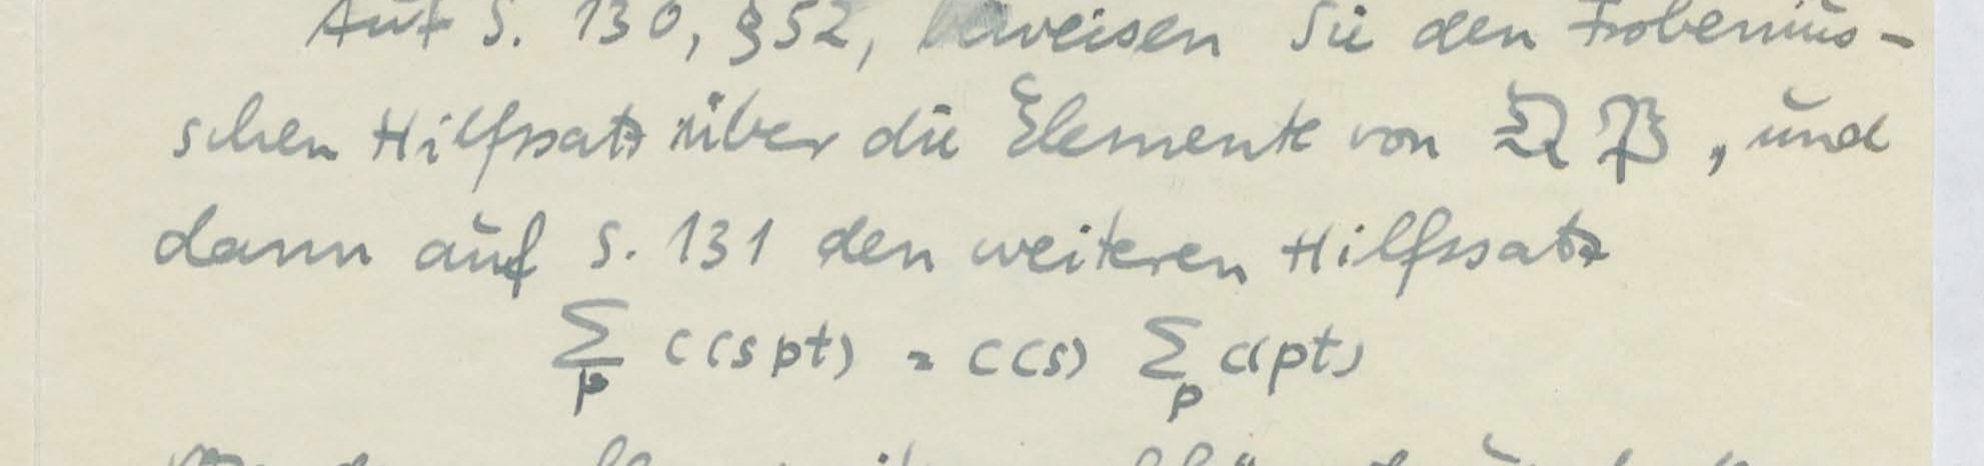 Auf S. 130, §52, beweisen Sie den Frobenius-
schen Hilfssatz über die Elemente von 𝔔 𝔓, und
dann auf S. 131 den weiteren Hilfssatz
∑_p c(spt) = c(s) ∑_p c(pt)